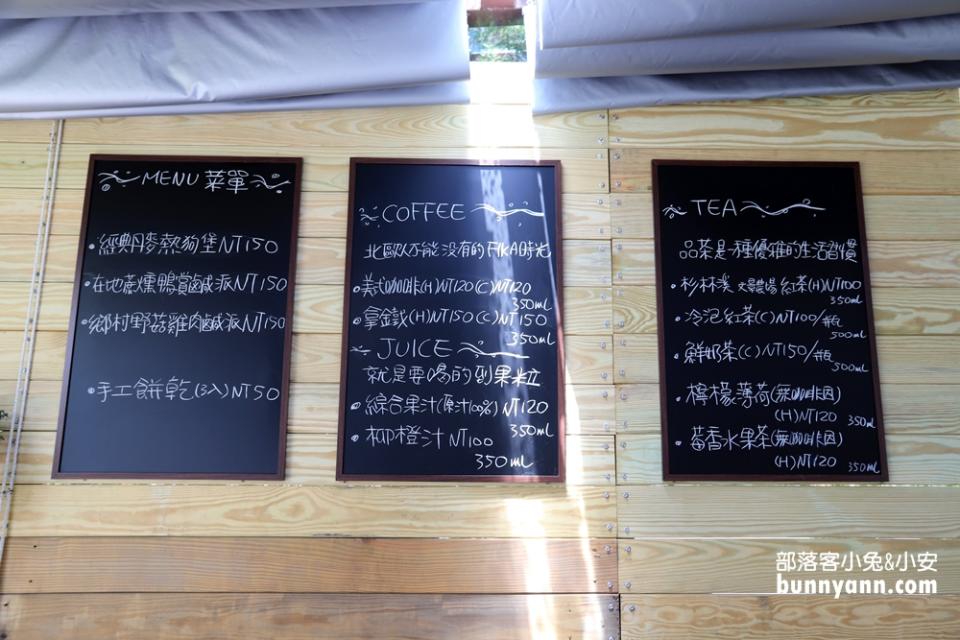 MENU 菜單
•經典丹麥熱狗堡NT150
•在地蔗燻鴨賞鹹派NT150
•鄉村野菇雞肉鹹派NT150
•手工餅乾(3入)NT50
COFFEE
北歐人不能沒有的FIKA時光
•美式咖啡(H)NT120(C)NT120
350mL
•拿鐵(H)NT150(C)NT150
350mL
JUICE
就是要喝的到果粒
•綜合果汁(原汁100%)NT120
350mL
•柳橙汁NT100
350mL
TEA
品茶是種優雅的生活習慣
•杉林溪 紅茶(H)NT100
350mL
•冷泡紅茶(C)NT100/瓶
500mL
•鮮奶茶(C)NT150/瓶
500mL
•檸檬薄荷(無咖啡因)
(H)NT120 350mL
•莓香水果茶(無咖啡因)
(H)NT120 350mL
部落客小兔&小安
bunnyann.com